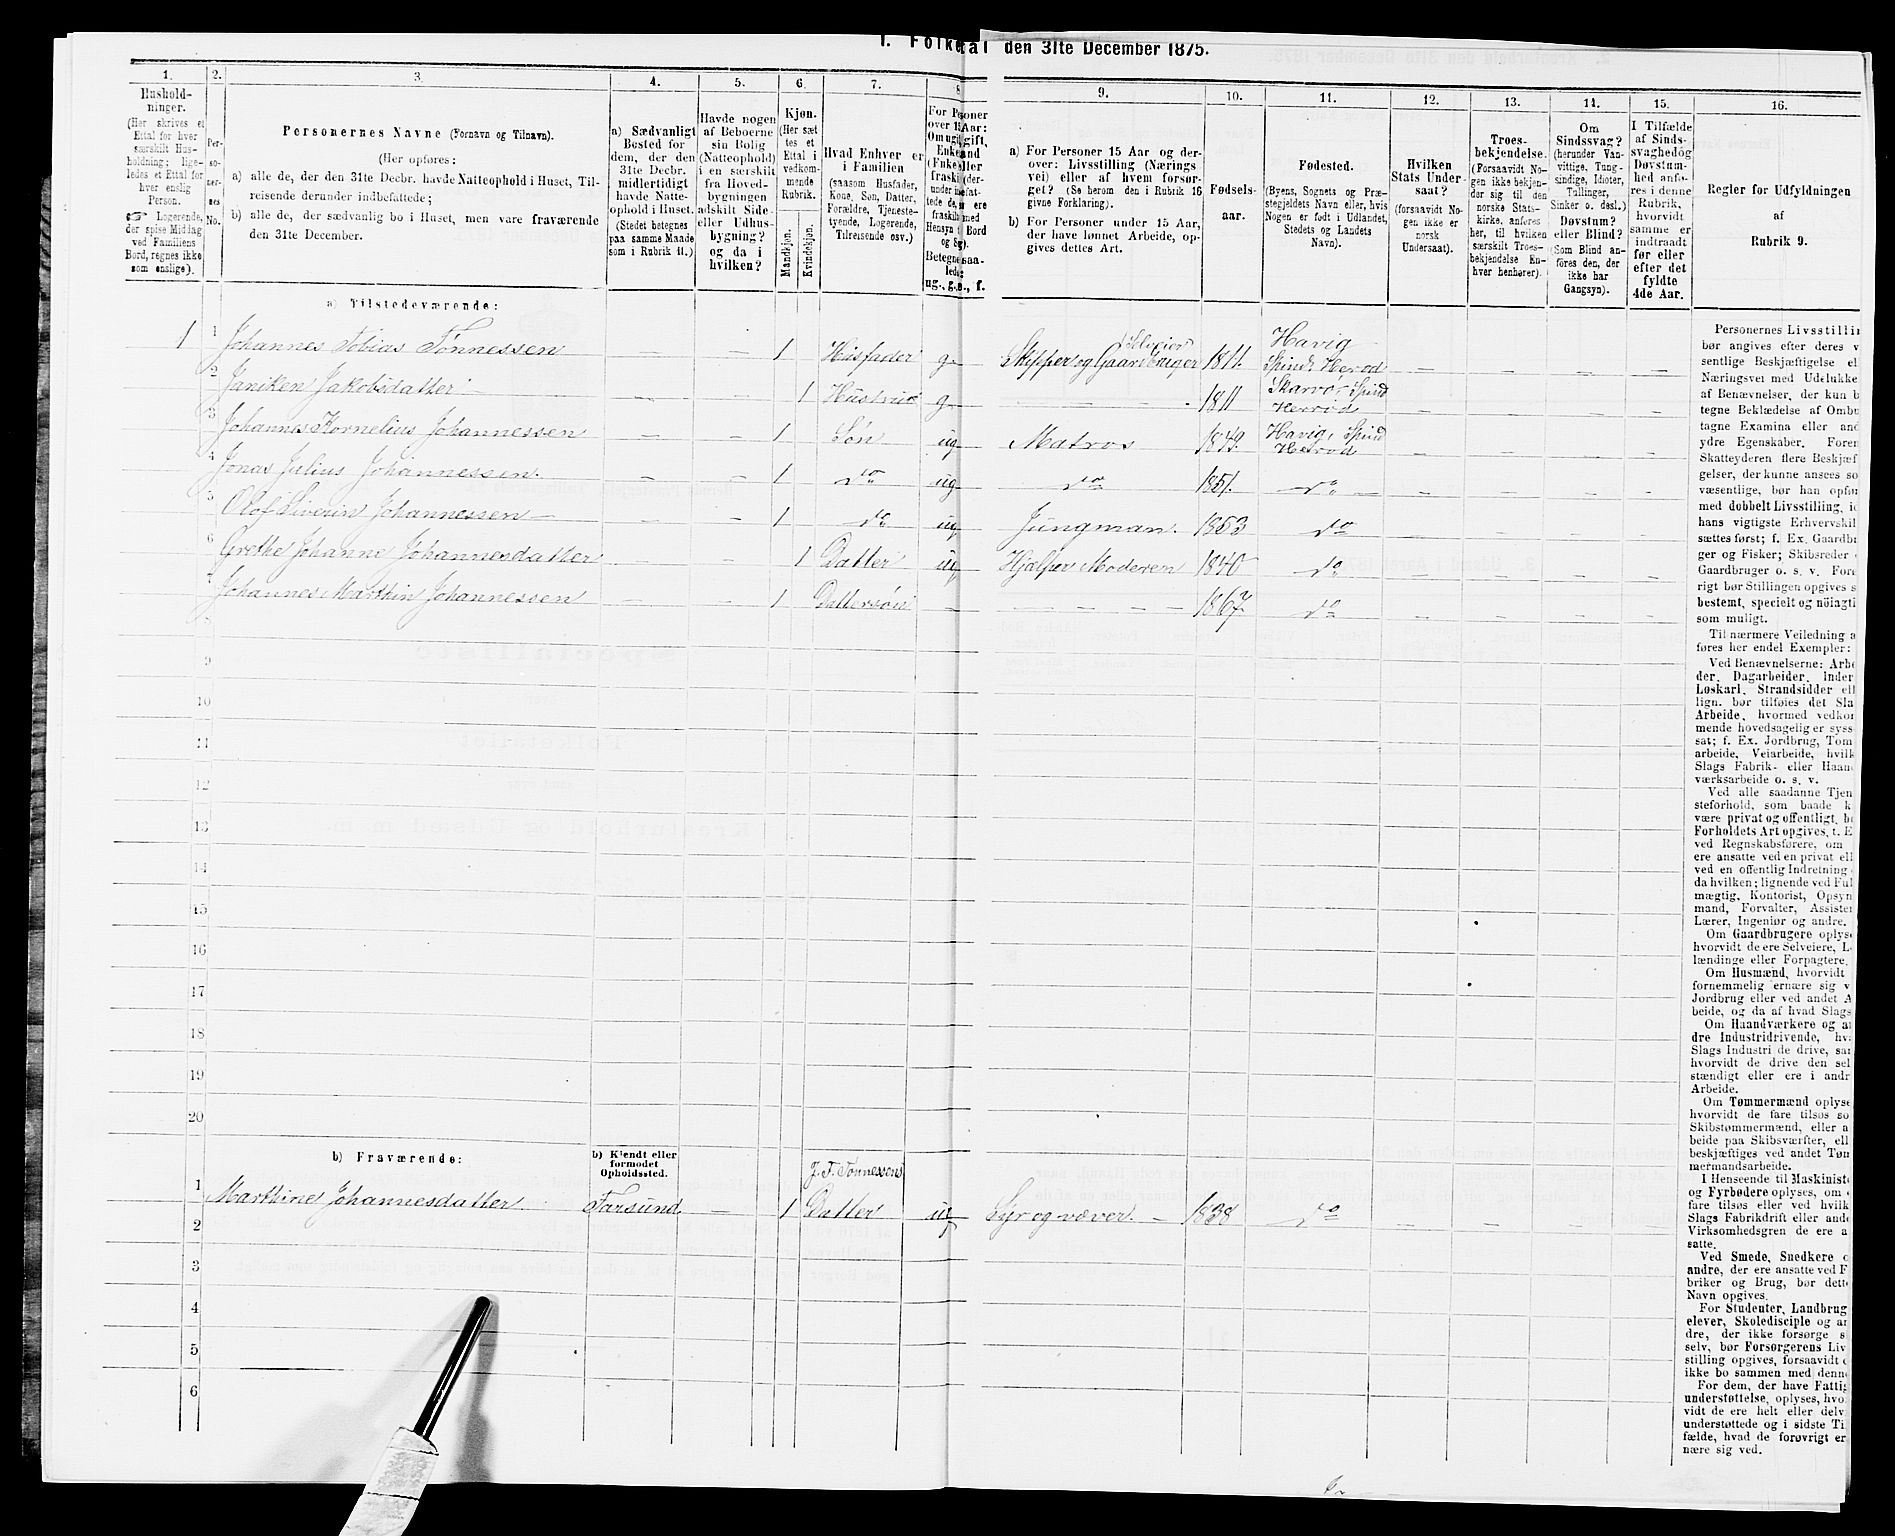 1. Folketal den 31te December 1875.
1. 2. 3. 4. 5. 6. 7. 8. 9. 10. 11. 12. 13. 14. 15. 16.
Hushold-
ninger.
(Her skrives et
Ettal for hver
særskilt Hus-
holdning; lige-
ledes et Ettal for
hver enslig
Person.
☞ Logerende,
der spise Middag
ved Familiens
Bord, regnes ikke
som enslige).
Per-
so-
ner-
nes
No.
Personernes Navne (Fornavn og Tilnavn).
(Her opføres:
a) alle de, der den 31te Decbr. havde Natteophold i Huset, Til-
reisende derunder indbefattede;
b) alle de, der sædvanlig bo i Huset, men vare fraværende
den 31te December.
a) Sædvanligt
Bosted for
dem, der den
31te Decbr.
midlertidigt
havde Natte-
ophold i Huset.
(Stedet betegnes
paa samme Maade
som i Rubrik 11.)
Havde nogen
af Beboerne
sin Bolig
(Natteophold)
i en særskilt
fra Hoved-
bygningen
adskilt Side-
eller Udhus-
bygning?
og da i
hvilken?
Kjøn.
(Her sæt-
tes et
Ettal i
vedkom-
mende
Rubrik.
Mandkjøn.
Kvindekjøn.
Hvad Enhver er
i Familien
(saasom Husfader,
Kone, Søn, Datter,
Forældre, Tjeneste-
tyende, Logerende,
Tilreisende osv.)
a) For Personer 15 Aar og der-
over: Livsstilling (Nærings-
vei) eller af hvem forsør-
get? (Se herom den i Rubrik 16
givne Forklaring).
b) For Personer under 15 Aar,
der have lønnet Arbeide, op-
gives dettes Art.
Fødsels-
aar.
Fødested.
(Byens, Sognets og Præ-
stegjeldets Navn eller, hvis
Nogen er født i Udlandet,
Stedets og Landets
Navn).
Hvilken
Stats Under-
saat?
(forsaavidt No-
gen ikke er
norsk
Undersaat).
Troes-
bekjendelse.
(Forsaavidt No-
gen ikke bekjen-
der sig til den
norske Stats-
kirke, anføres
her, til hvilken
særskilt Troes-
bekjendelse En-
hver henhører).
Om
Sindssvag?
(herunder Van-
vittige, Tung-
sindige, Idioter,
Tullinger,
Sinker o. desl.)
Døvstum?
eller Blind?
(Som Blind an-
føres den, der
ikke har
Gangsyn).
I Tilfælde
af Sinds-
svaghed og
Døvstum-
hed anfø-
res i denne
Rubrik,
hvorvidt
samme er
indtraadt
før eller
efter det
fyldte
4de Aar.
Regler for Udfyldningen
af
Rubrik 9.
a) Tilstedeværende:
1 1 Johannes Tobias Tønnessen — — 1 Husfader g. Skipper og Gaardbruger Selveier 1811. Havig Spind, Herod — — — —
2 Janiken Jakobsdatter — — 1 Hustrue g. — 1811 Skarvø, Spind Herrod — — — —
3 Johannes Kornelius Johannessen — — 1 Søn ug Matros 1849. Havig, Spind Herod — — — —
4 Jonas Julius Johannessen. — — 1 do ug do 1851. do — — — —
5 Olof Siverin Johannessen — — — 1 do ug Jungman. 1853 do — — — —
6 Grethe Johanne Johannesdatter — — 1 Datter ug Hjælper Moderen 1840 do — — — —
7 Johannes Marthin Johannessen — — 1 Dattersøn — — 1867 do — — — —
8
9
10
11
12
13
14
15
16
17
18
19
20
b) Fraværende:
b) Kjendt eller
formodet
Opholdssted.
J. T. Tønnessens
1 Marthine Johannesdatter Farsund — 1 Datter ug Syr og væver. — 1838 do
2
3
4
5
6
Personernes Livsstillin
bør angives efter deres v
sentlige Beskjæftigelse el
Næringsvei med Udelukke
af Benævnelser, der kun b
tegne Beklædelse af Ombu
tagne Examina eller and
ydre Egenskaber. Foren
Skatteyderen flere Beskjæf
gelser, der kunne ansees so
væsentlige, bør han opfør
med dobbelt Livsstilling, id
hans vigtigste Erhvervskil
sættes først; f. Ex. Gaardbr
ger og Fisker; Skibsreder
Gaardbruger o. s. v. Fore
rigt bør Stillingen opgives s
bestemt, specielt og nöiagti
som muligt.
Til nærmere Veiledning a
føres her endel Exempler:
Ved Benævnelserne: Arbe
der, Dagarbeider, Inder
Løskarl, Strandsidder ell
lign. bør tilføies det Sla
Arbeide, hvormed vedkom
mende hovedsagelig er syss
sat; f. Ex. Jordbrug, Tom
arbeide, Veiarbeide, hvilk
Slags Fabrik- eller Haan
værksarbeide o. s. v.
Ved alle saadanne Tjen
steforhold, som baade k
være privat og offentligt, b
Forholdets Art opgives, t. E
ved Regnskabsførere, om
ere ansatte ved en privat ell
ved en offentlig Indretning
da hvilken; lignende ved Ful
mægtig, Kontorist, Opsyn
mand, Forvalter, Assisten
Lærer, Ingeniør og andre.
Om Gaardbrugere oplyse
hvorvidt de ere Selveiere, L
lændinge eller Forpagtere.
Om Husmænd, hvorvidt
fornemmelig ernære sig v
Jordbrug eller ved andet A
beide, og da af hvad Slags
Om Haandværkere og a
dre Industridrivende, hv
Slags Industri de drive, sa
hvorvidt de drive den sel
stændigt eller ere i andr
Arbeide.
Om Tømmermænd oplyse
hvorvidt de fare tilsøs so
Skibstømmermænd, eller a
beide paa Skibsværfter, ell
beskjæftiges ved andet Tøm
mermandsarbeide.
I Henseende til Maskinist
og Fyrbødere oplyses, om
fare tilsøs eller ved hvilk
Slags Fabrikdrift eller ande
Virksomhedsgren de ere a
satte.
Ved Smede, Snedkere o
andre, der ere ansatte ved F
briker og Brug, bør dett
Navn opgives.
For Studenter, Landbrug
elever, Skoledisciple og a
dre, der ikke forsørge s
selv, bør Forsørgerens Liv
stilling opgives, forsaavidt
ikke bo sammen med denne
For dem, der have Fattig
understøttelse, oplyses, hvo
vidt de ere helt eller delv
understøttede og i sidste Ti
fælde, hvad de forøvrigt er
nære sig ved.